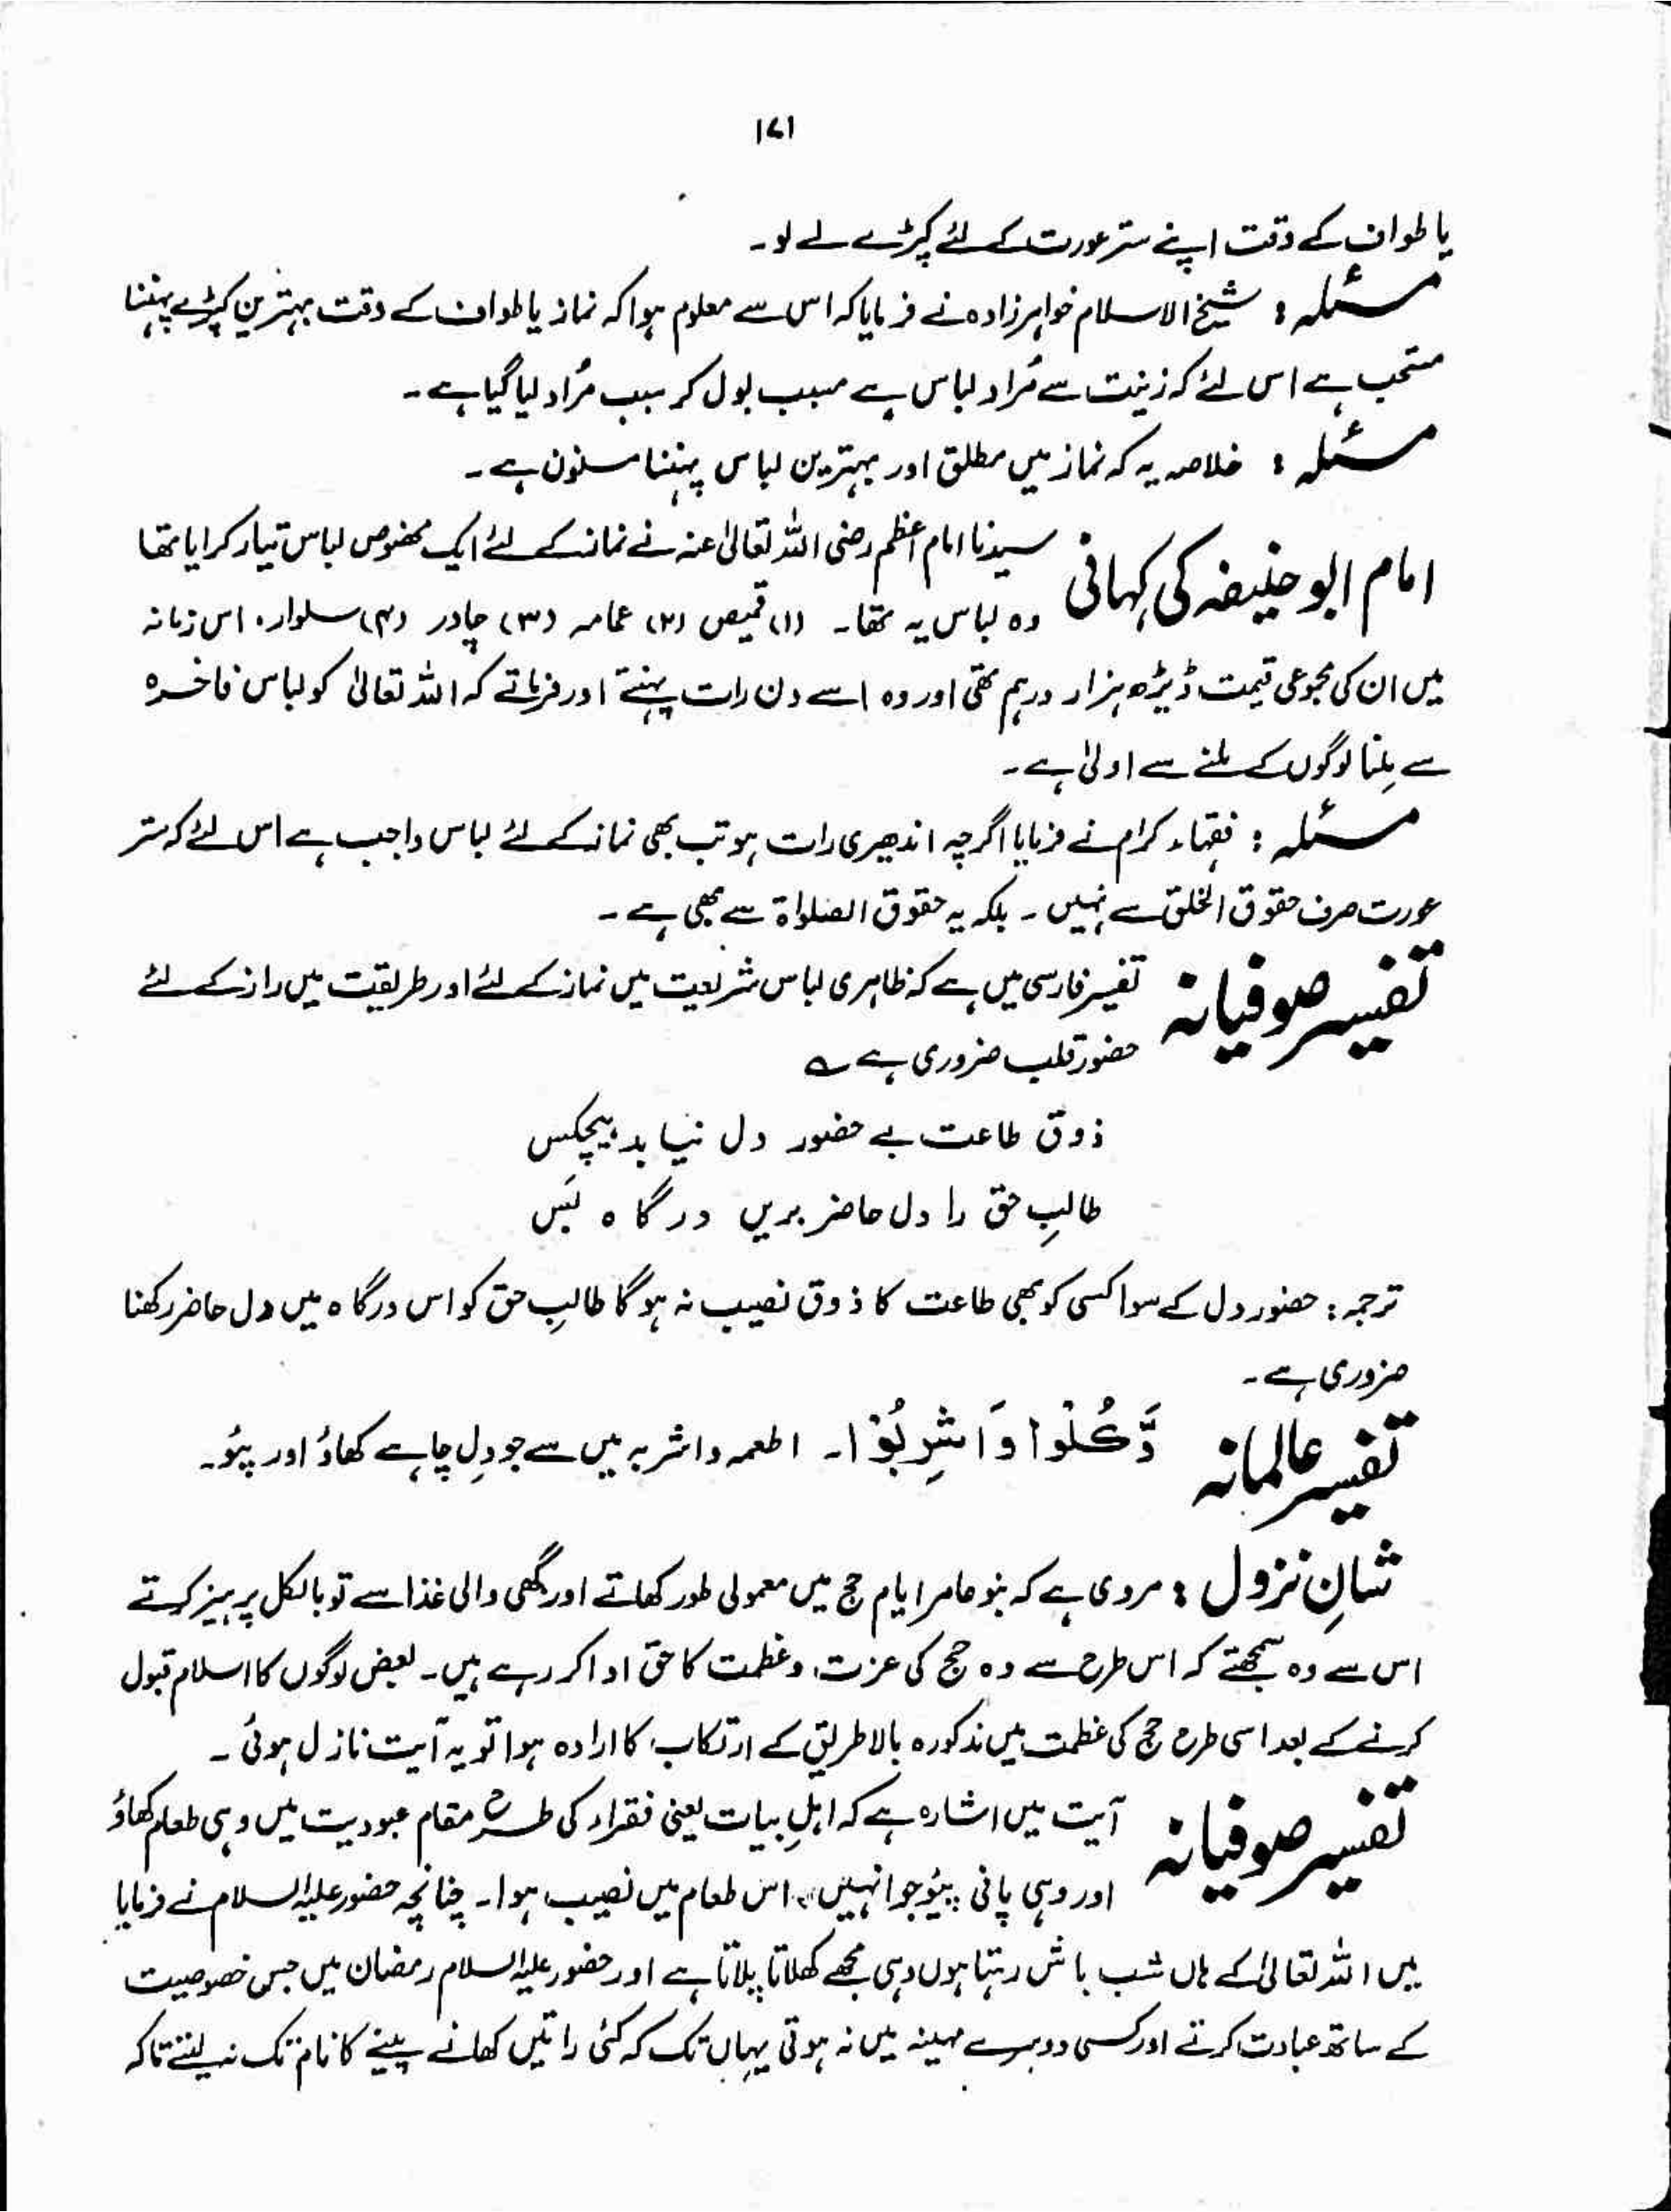 ۱۷۱
یا طواف کے وقت اپنے ستر عورت کے لئے کپڑے لے لو۔
مسئلہ : شیخ الاسلام خواہرزادہ نے فرمایا کہ اس سے معلوم ہوا کہ نماز یا طواف کے وقت بہترین کپڑے پہننا
مستحب ہے اس لئے کہ زینت سے مُراد لباس ہے مسبب بول کر سبب مُراد لیا گیا ہے۔
مسئلہ : خلاصہ یہ کہ نماز میں مطلق اور بہترین لباس پہننا مسنون ہے۔
امام ابو حنیفہ کی کہانی سیدنا امام اعظم رضی اللہ تعالیٰ عنہ نے نماز کے لئے ایک مخصوص لباس تیار کرایا تھا
وہ لباس یہ تھا۔ (۱) قمیص (۲) عمامہ (۳) چادر (۴) سلوار۔ اس زمانہ
میں ان کی مجموعی قیمت ڈیڑھ ہزار درہم تھی اور وہ اسے دن رات پہنتے اور فرماتے کہ اللہ تعالیٰ کو لباس فاخرہ
سے مِلنا لوگوں کے ملنے سے اولیٰ ہے۔
مسئلہ : فقہاء کرام نے فرمایا اگرچہ اندھیری رات ہو تب بھی نماز کے لئے لباس واجب ہے اس لئے کہ ستر
عورت صرف حقوق الخلق سے نہیں۔ بلکہ یہ حقوق الصلواۃ سے بھی ہے۔
تفسیر صوفیانہ تفسیر فارسی میں ہے کہ ظاہری لباس شریعت میں نماز کے لئے اور طریقت میں راز کے لئے
حضور قلب ضروری ہے ؎
ذوق طاعت بے حضور دل نیابد ہیچکس
طالبِ حق را دل حاضر بریں درگاہ بَس
ترجمہ : حضور دل کے سوا کسی کو بھی طاعت کا ذوق نصیب نہ ہو گا طالبِ حق کو اس درگاہ میں دل حاضر رکھنا
ضروری ہے۔
تفسیر عالمانہ وَّکُلُوْا وَاشْرِبُوْا۔ اطعمہ واشربہ میں سے جو دِل چاہے کھاؤ اور پئو۔
شانِ نزول : مروی ہے کہ بنو عامر ایام حج میں معمولی طور کھاتے اور گھی والی غذا سے تو بالکل پرہیز کرتے
اس سے وہ سمجھتے کہ اس طرح سے وہ حج کی عزت و عظمت کا حق ادا کر رہے ہیں۔ بعض لوگوں کا اسلام قبول
کرنے کے بعد اسی طرح حج کی عظمت میں مذکورہ بالا طریق کے ارتکاب کا ارادہ ہوا تو یہ آیت نازل ہوئی۔
تفسیر صوفیانہ آیت میں اشارہ ہے کہ اہلِ بیات یعنی فقراء کی طرح مقام عبودیت میں وہی طعام کھاؤ
اور وہی پانی پیئو جو انہیں اس طعام میں نصیب ہوا۔ چنانچہ حضور علیہ السلام نے فرمایا
میں اللہ تعالیٰ کے ہاں شب باش رہتا ہوں وہی مجھے کھلاتا پلاتا ہے اور حضور علیہ السلام رمضان میں جس خصوصیت
کے ساتھ عبادت کرتے اور کسی دوسرے مہینہ میں نہ ہوتی یہاں تک کہ کئی راتیں کھانے پینے کا نام تک نہ لیتے تاکہ